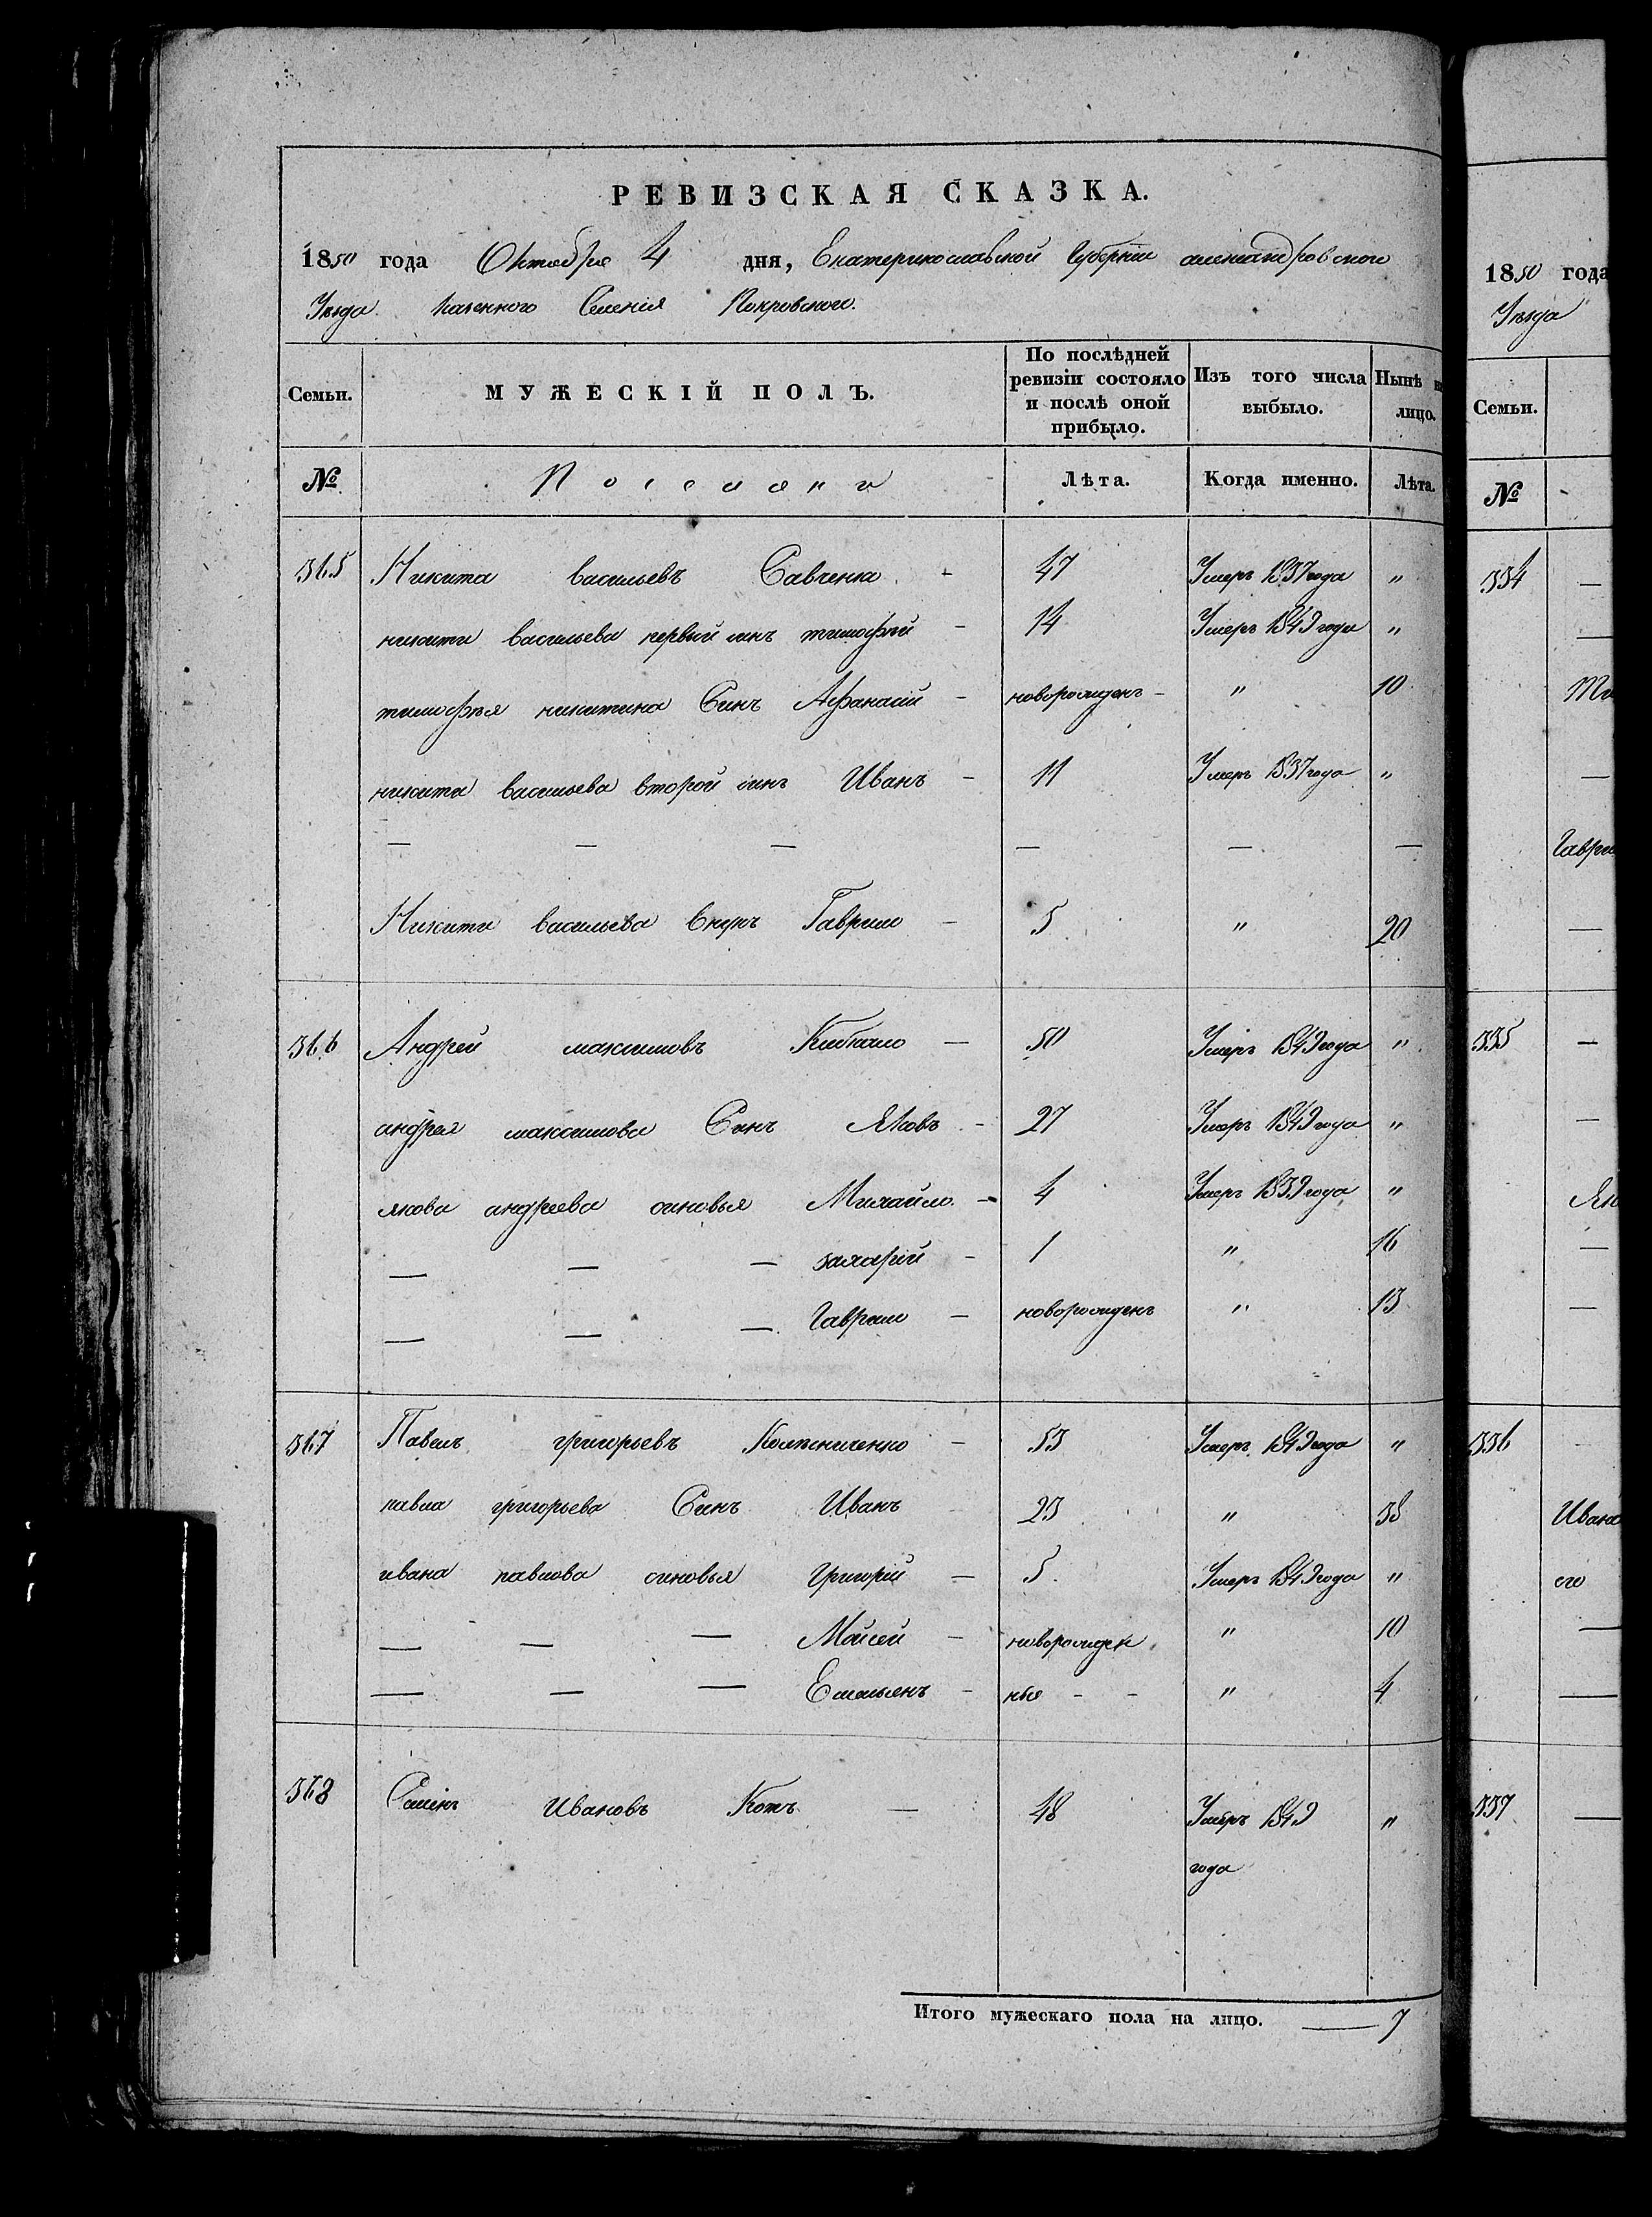 РЕВИЗСКАЯ СКАЗКА.
1850 года Октября 4 дня, Екатеринославской Губерніи александровского
Уѣзда Казенного Селенія Покровского.
Семьи. МУЖЕСКІЙ ПОЛЪ. По послѣдней ревизіи состояло и послѣ оной прибыло. Изъ того числа выбыло. Нынѣ на лицо.
№ Поселяни Лѣта. Когда именно. Лѣта.
365 Никита васильевъ Савченко - 47 Умеръ 1837 года "
никити васильева первый синъ тимофѣй - 14 Умеръ 1849 года "
тимофѣя никитина Синъ Афанасій - новорожденъ - " 10
никити васильева второй синъ Иванъ - 11 Умеръ 1837 года "
— — — — — —
Никити васильева внукъ Гаврило - 5 " 20
366 Андрей максимовъ Кибкало - 50 Умеръ 1849 года "
андрея максимова Синъ Яковъ - 27 Умеръ 1849 года "
якова андреева синовья Михайло - 4 Умеръ 1839 года "
— — — захарій - 1 " 16
— — — Гаврило - новорожденъ " 13
367 Павелъ григорьевъ Колѣсниченко - 53 Умеръ 1849 года "
павла григорьева Синъ Иванъ 23 " 38
ивана павлова синовья Григорій - 5 Умеръ 1849 года "
— — — Мойсей - новорожден " 10
— — — Емельянъ - ныя - - " 4
368 Семенъ Ивановъ Котъ — 48 Умеръ 1849 "
года
Итого мужескаго пола на лицо. — 7
1850 года
Уѣзда
Семьи.
№
334 —
—
—
Гаври
—
335 —
—
Як
—
—
336 -
Ивана
его
—
—
337 —